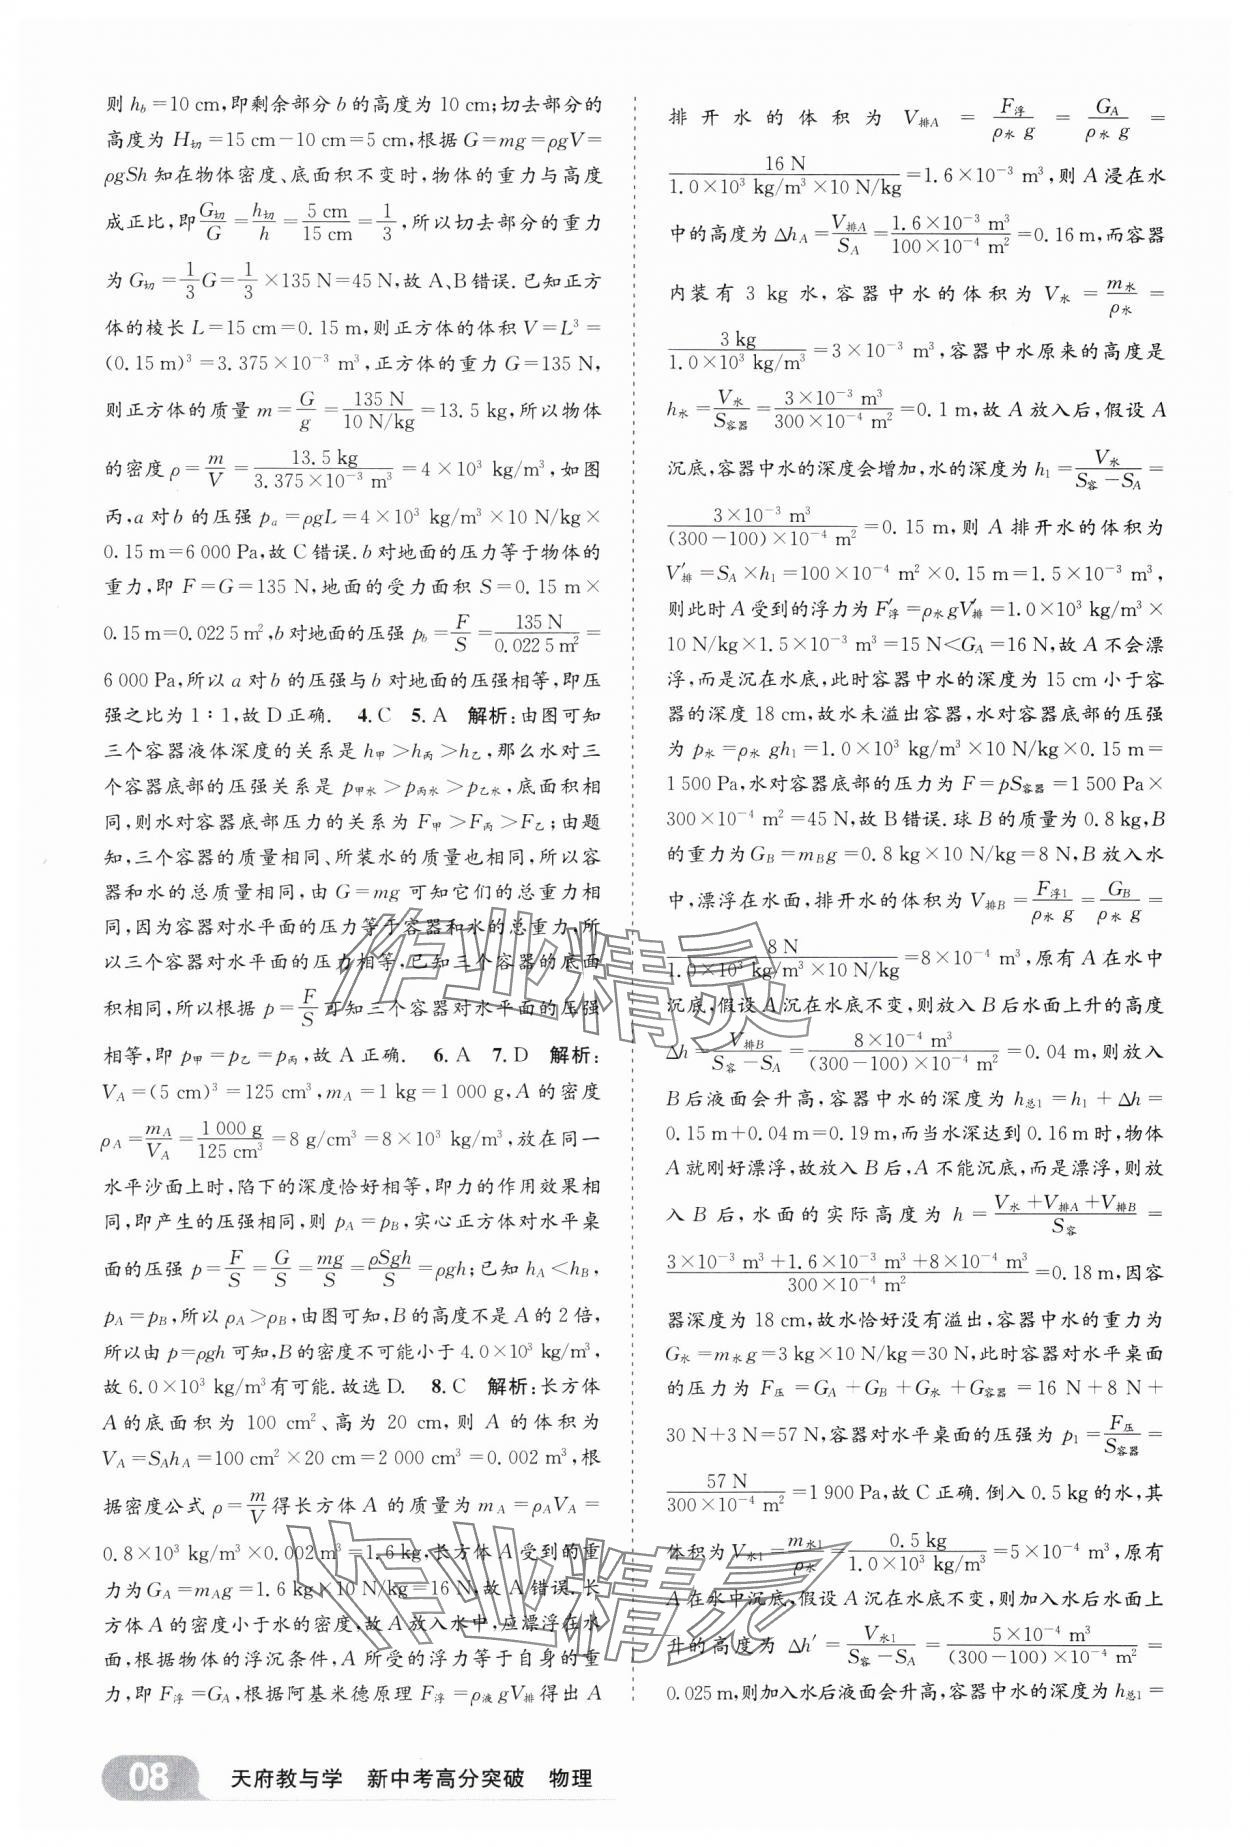 则 h_b=10 cm,即剩余部分 b 的高度为 10 cm;切去部分的
高度为 H切=15 cm-10 cm=5 cm,根据 G=mg=ρgV=
ρgSh 知在物体密度、底面积不变时,物体的重力与高度
成正比,即 G切/G=h切/h=5 cm/15 cm=1/3,所以切去部分的重力
为 G切=1/3G=1/3×135 N=45 N,故 A、B 错误. 已知正方
体的棱长 L=15 cm=0.15 m,则正方体的体积 V=L³=
(0.15 m)³=3.375×10⁻³ m³,正方体的重力 G=135 N,
则正方体的质量 m=G/g=135 N/10 N/kg=13.5 kg,所以物体
的密度 ρ=m/V=13.5 kg/3.375×10⁻³ m³=4×10³ kg/m³,如图
丙,a 对 b 的压强 p_a=ρgL=4×10³ kg/m³×10 N/kg×
0.15 m=6 000 Pa,故 C 错误. b 对地面的压力等于物体的
重力,即 F=G=135 N,地面的受力面积 S=0.15 m×
0.15 m=0.022 5 m²,b 对地面的压强 p_b=F/S=135 N/0.022 5 m²=
6 000 Pa,所以 a 对 b 的压强与 b 对地面的压强相等,即压
强之比为 1∶1,故 D 正确. 4. C 5. A 解析:由图可知
三个容器液体深度的关系是 h甲>h丙>h乙,那么水对三
个容器底部的压强关系是 p甲水>p丙水>p乙水,底面积相
同,则水对容器底部压力的关系为 F甲>F丙>F乙;由题
知,三个容器的质量相同、所装水的质量也相同,所以容
器和水的总质量相同,由 G=mg 可知它们的总重力相
同,因为容器对水平面的压力等于容器和水的总重力,所
以三个容器对水平面的压力相等,已知三个容器的底面
积相同,所以根据 p=F/S 可知三个容器对水平面的压强
相等,即 p甲=p乙=p丙,故 A 正确. 6. A 7. D 解析:
V_A=(5 cm)³=125 cm³,m_A=1 kg=1 000 g,A 的密度
ρ_A=m_A/V_A=1 000 g/125 cm³=8 g/cm³=8×10³ kg/m³,放在同一
水平沙面上时,陷下的深度恰好相等,即力的作用效果相
同,即产生的压强相同,则 p_A=p_B,实心正方体对水平桌
面的压强 p=F/S=G/S=mg/S=ρSgh/S=ρgh;已知 h_A<h_B,
p_A=p_B,所以 ρ_A>ρ_B,由图可知,B 的高度不是 A 的 2 倍,
所以由 p=ρgh 可知,B 的密度不可能小于 4.0×10³ kg/m³,
故 6.0×10³ kg/m³ 有可能. 故选 D. 8. C 解析:长方体
A 的底面积为 100 cm²、高为 20 cm,则 A 的体积为
V_A=S_Ah_A=100 cm²×20 cm=2 000 cm³=0.002 m³,根
据密度公式 ρ=m/V 得长方体 A 的质量为 m_A=ρ_AV_A=
0.8×10³ kg/m³×0.002 m³=1.6 kg,长方体 A 受到的重
力为 G_A=m_Ag=1.6 kg×10 N/kg=16 N,故 A 错误. 长
方体 A 的密度小于水的密度,故 A 放入水中,应漂浮在水
面,根据物体的浮沉条件,A 所受的浮力等于自身的重
力,即 F浮=G_A,根据阿基米德原理 F浮=ρ液gV排得出 A
排开水的体积为 V排A=F浮/ρ水g=G_A/ρ水g=
16 N/1.0×10³ kg/m³×10 N/kg=1.6×10⁻³ m³,则 A 浸在水
中的高度为 Δh_A=V排A/S_A=1.6×10⁻³ m³/100×10⁻⁴ m²=0.16 m,而容器
内装有 3 kg 水,容器中水的体积为 V水=m水/ρ水=
3 kg/1.0×10³ kg/m³=3×10⁻³ m³,容器中水原来的高度是
h水=V水/S容器=3×10⁻³ m³/300×10⁻⁴ m²=0.1 m,故 A 放入后,假设 A
沉底,容器中水的深度会增加,水的深度为 h₁=V水/S容-S_A=
3×10⁻³ m³/(300-100)×10⁻⁴ m²=0.15 m,则 A 排开水的体积为
V′排=S_A×h₁=100×10⁻⁴ m²×0.15 m=1.5×10⁻³ m³,
则此时 A 受到的浮力为 F′浮=ρ水gV′排=1.0×10³ kg/m³×
10 N/kg×1.5×10⁻³ m³=15 N<G_A=16 N,故 A 不会漂
浮,而是沉在水底,此时容器中水的深度为 15 cm 小于容
器的深度 18 cm,故水未溢出容器,水对容器底部的压强
为 p水=ρ水gh₁=1.0×10³ kg/m³×10 N/kg×0.15 m=
1 500 Pa,水对容器底部的压力为 F=pS容器=1 500 Pa×
300×10⁻⁴ m²=45 N,故 B 错误. 球 B 的质量为 0.8 kg,B
的重力为 G_B=m_Bg=0.8 kg×10 N/kg=8 N,B 放入水
中,漂浮在水面,排开水的体积为 V排B=F浮1/ρ水g=G_B/ρ水g=
8 N/1.0×10³ kg/m³×10 N/kg=8×10⁻⁴ m³,原有 A 在水中
沉底,假设 A 沉在水底不变,则放入 B 后水面上升的高度
Δh=V排B/S容-S_A=8×10⁻⁴ m³/(300-100)×10⁻⁴ m²=0.04 m,则放入
B 后液面会升高,容器中水的深度为 h总1=h₁+Δh=
0.15 m+0.04 m=0.19 m,而当水深达到 0.16 m 时,物体
A 就刚好漂浮,故放入 B 后,A 不能沉底,而是漂浮,则放
入 B 后,水面的实际高度为 h=V水+V排A+V排B/S容=
3×10⁻³ m³+1.6×10⁻³ m³+8×10⁻⁴ m³/300×10⁻⁴ m²=0.18 m,因容
器深度为 18 cm,故水恰好没有溢出,容器中水的重力为
G水=m水g=3 kg×10 N/kg=30 N,此时容器对水平桌面
的压力为 F压=G_A+G_B+G水+G容器=16 N+8 N+
30 N+3 N=57 N,容器对水平桌面的压强为 p₁=F压/S容器=
57 N/300×10⁻⁴ m²=1 900 Pa,故 C 正确. 倒入 0.5 kg 的水,其
体积为 V水1=m水1/ρ水=0.5 kg/1.0×10³ kg/m³=5×10⁻⁴ m³,原有
A 在水中沉底,假设 A 沉在水底不变,则加入水后水面上
升的高度为 Δh′=V水1/S容-S_A=5×10⁻⁴ m³/(300-100)×10⁻⁴ m²=
0.025 m,则加入水后液面会升高,容器中水的深度为 h总1=
作业精灵
作业精灵
08 天府教与学 新中考高分突破 物理